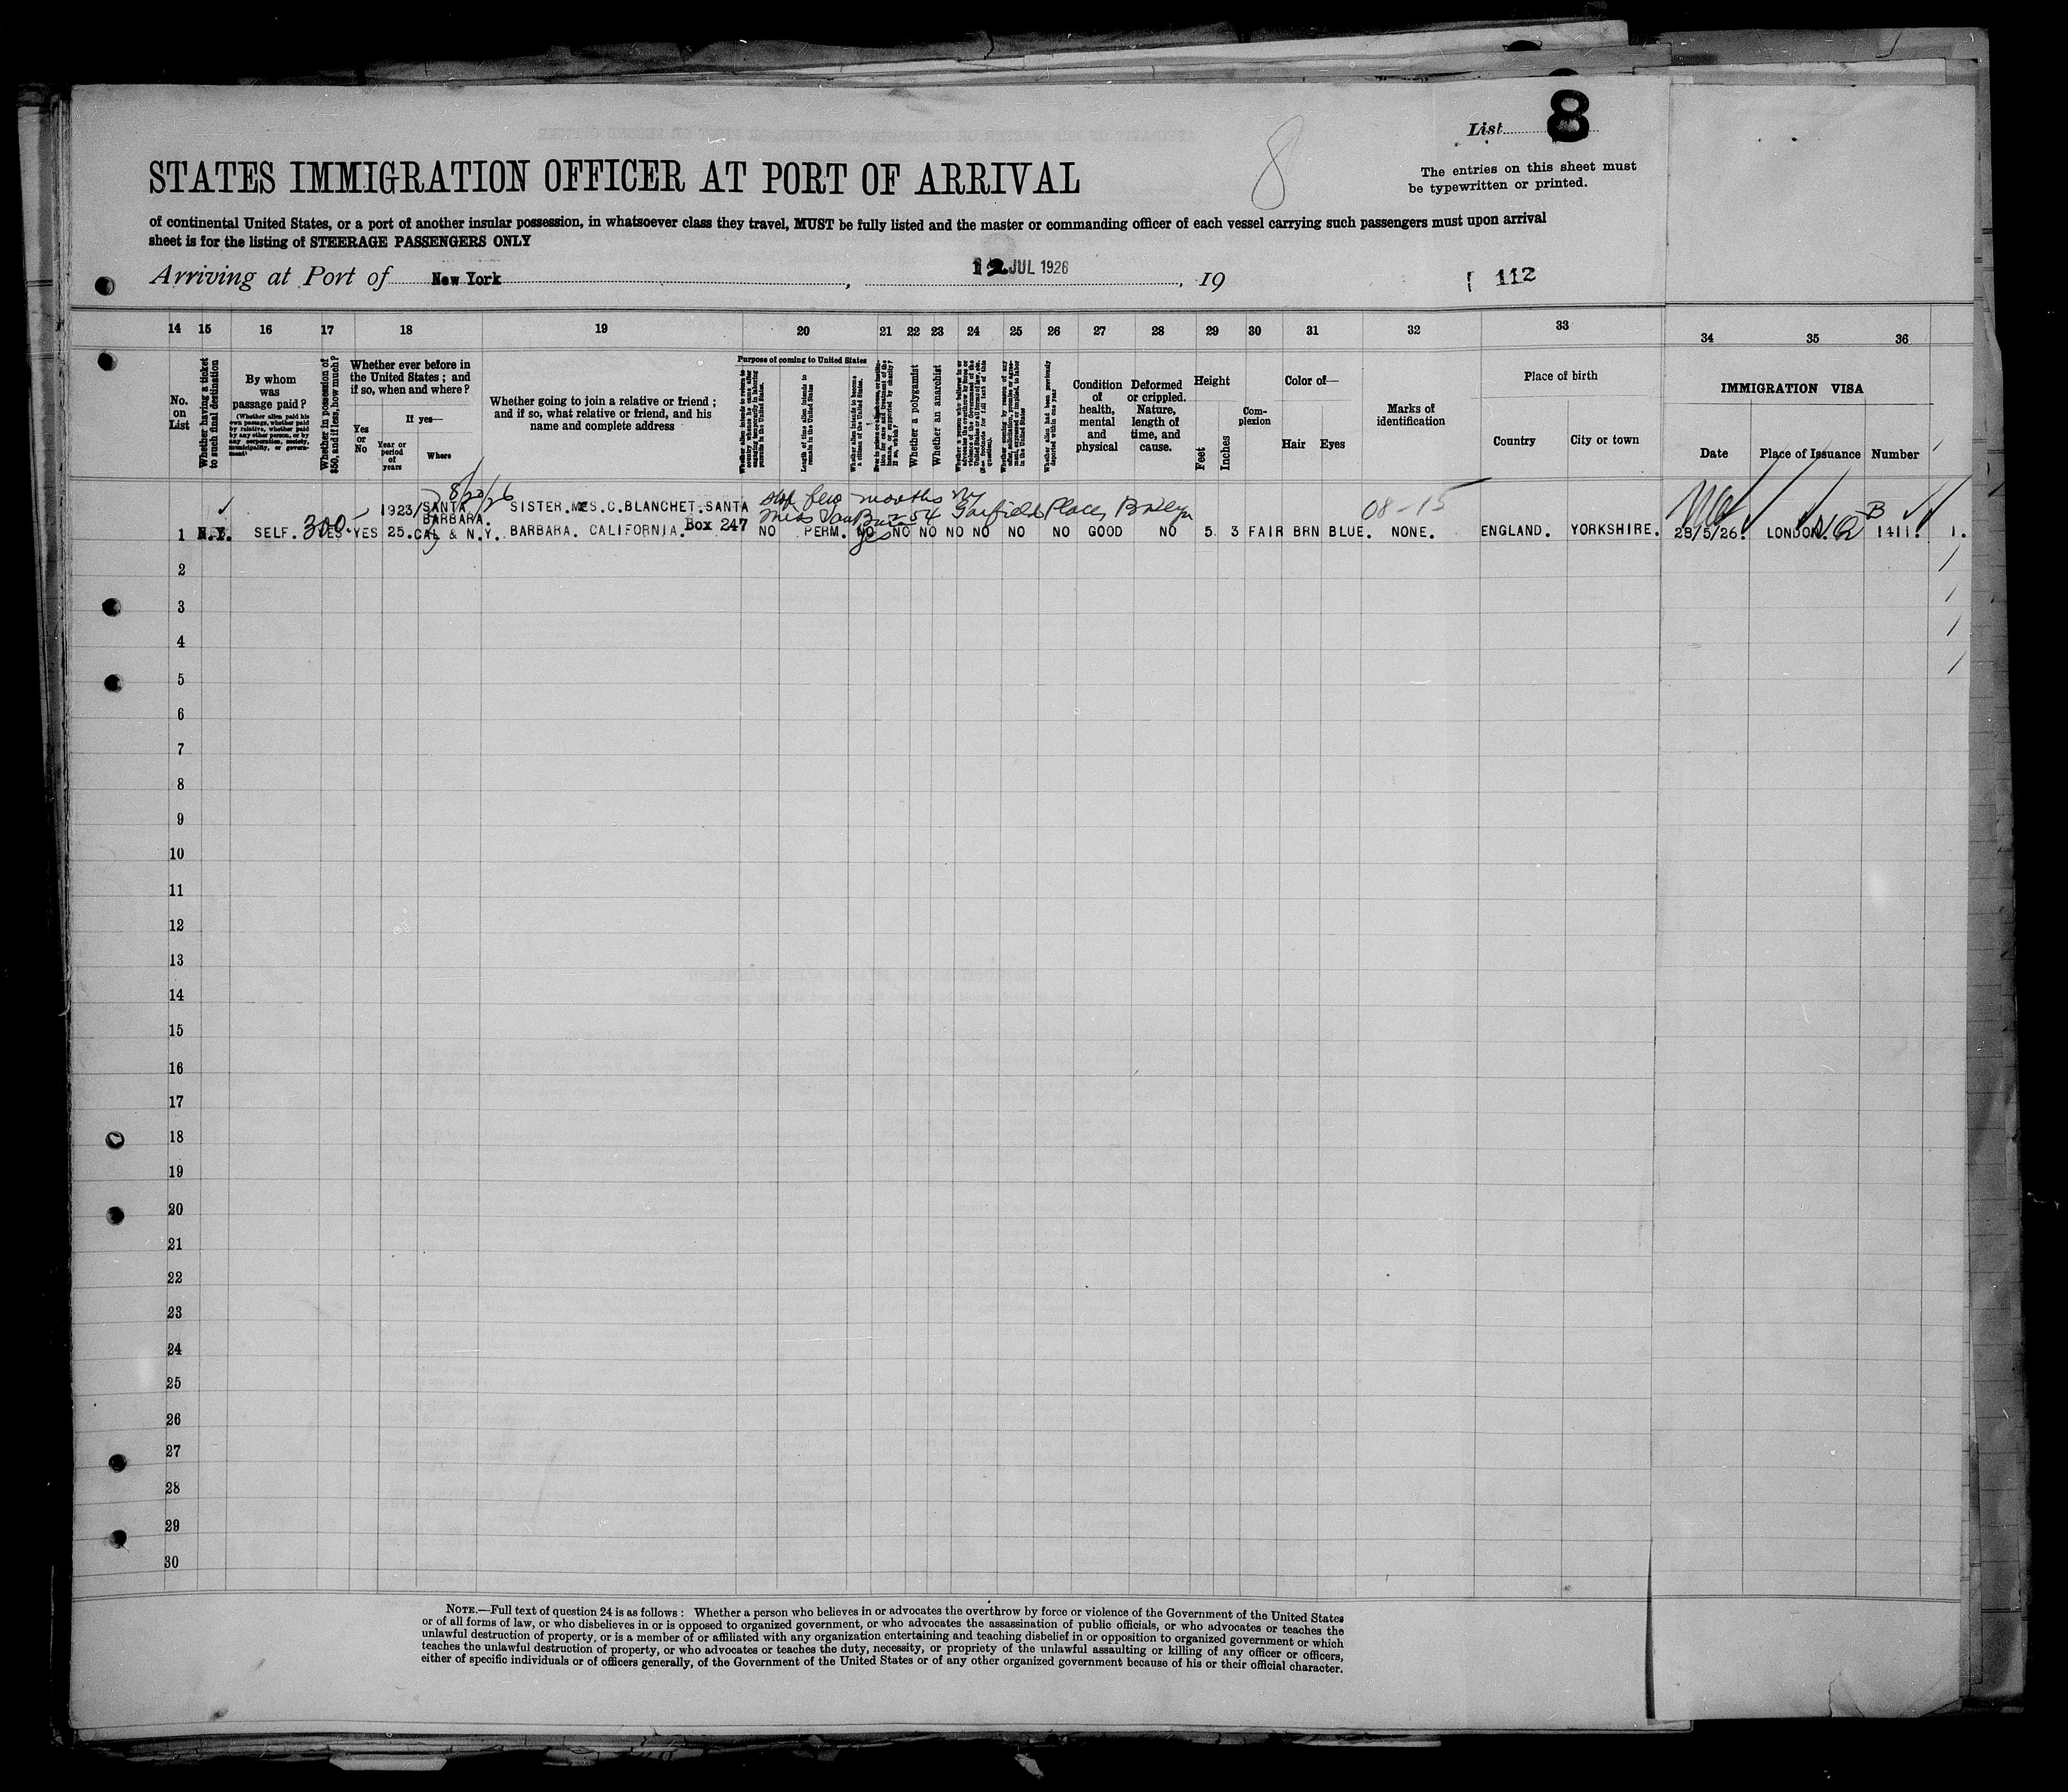 List 8
8
The entries on this sheet must
be typewritten or printed.
STATES IMMIGRATION OFFICER AT PORT OF ARRIVAL
of continental United States, or a port of another insular possession, in whatsoever class they travel, MUST be fully listed and the master or commanding officer of each vessel carrying such passengers must upon arrival
sheet is for the listing of STEERAGE PASSENGERS ONLY
Arriving at Port of New York, 12 JUL 1926, 19
112
14 15 16 17 18 19 20 21 22 23 24 25 26 27 28 29 30 31 32 33 34 35 36
No.
on
List
Whether having a ticket
to such final destination
By whom
was
passage paid?
(Whether alien paid his
own passage, whether paid
by relative, whether paid
by any other person, or by
any corporation, society,
municipality, or govern-
ment)
Whether in possession of
$50, and if less, how much?
Whether ever before in
the United States; and
if so, when and where?
Yes
or
No
If yes—
Year or
period
of
years
Where
Whether going to join a relative or friend;
and if so, what relative or friend, and his
name and complete address
Purpose of coming to United States
Whether alien intends to return to
country whence he came after
engaging temporarily in laboring
pursuits in the United States.
Length of time alien intends to
remain in the United States
Whether alien intends to become
a citizen of the United States.
Ever in prison or almshouse, or institu-
tion for care and treatment of the
insane, or supported by charity?
If so, which?
Whether a polygamist
Whether an anarchist
Whether a person who believes in or
advocates the overthrow by force or
violence of the Government of the
United States or all forms of law, etc.
(See footnote for full text of this
question).
Whether coming by reason of any
offer, solicitation, promise or agree-
ment, expressed or implied, to labor
in the United States
Whether alien had been previously
deported within one year
Condition
of
health,
mental
and
physical
Deformed
or crippled.
Nature,
length of
time, and
cause.
Height
Feet
Inches
Com-
plexion
Color of—
Hair Eyes
Marks of
identification
Place of birth
Country City or town
IMMIGRATION VISA
Date Place of Issuance Number
8/20/26
stop few months
Miss 54 Garfield Place, Bklyn
08-15
1923/ SANTA SISTER.MRS.C.BLANCHET.SANTA
BARBARA. Box 247
B
1 N.Y. SELF. 300 YES YES 25. CAL & N.Y. BARBARA. CALIFORNIA. NO PERM. NO yes NO NO NO NO NO NO GOOD NO 5 3 FAIR BRN BLUE. NONE. ENGLAND. YORKSHIRE. 28/5/26. LONDON. 1411. 1.
2
3
4
5
6
7
8
9
10
11
12
13
14
15
16
17
18
19
20
21
22
23
24
25
26
27
28
29
30
NOTE.—Full text of question 24 is as follows: Whether a person who believes in or advocates the overthrow by force or violence of the Government of the United States
or of all forms of law, or who disbelieves in or is opposed to organized government, or who advocates the assassination of public officials, or who advocates or teaches the
unlawful destruction of property, or is a member of or affiliated with any organization entertaining and teaching disbelief in or opposition to organized government or which
teaches the unlawful destruction of property, or who advocates or teaches the duty, necessity, or propriety of the unlawful assaulting or killing of any officer or officers,
either of specific individuals or of officers generally, of the Government of the United States or of any other organized government because of his or their official character.